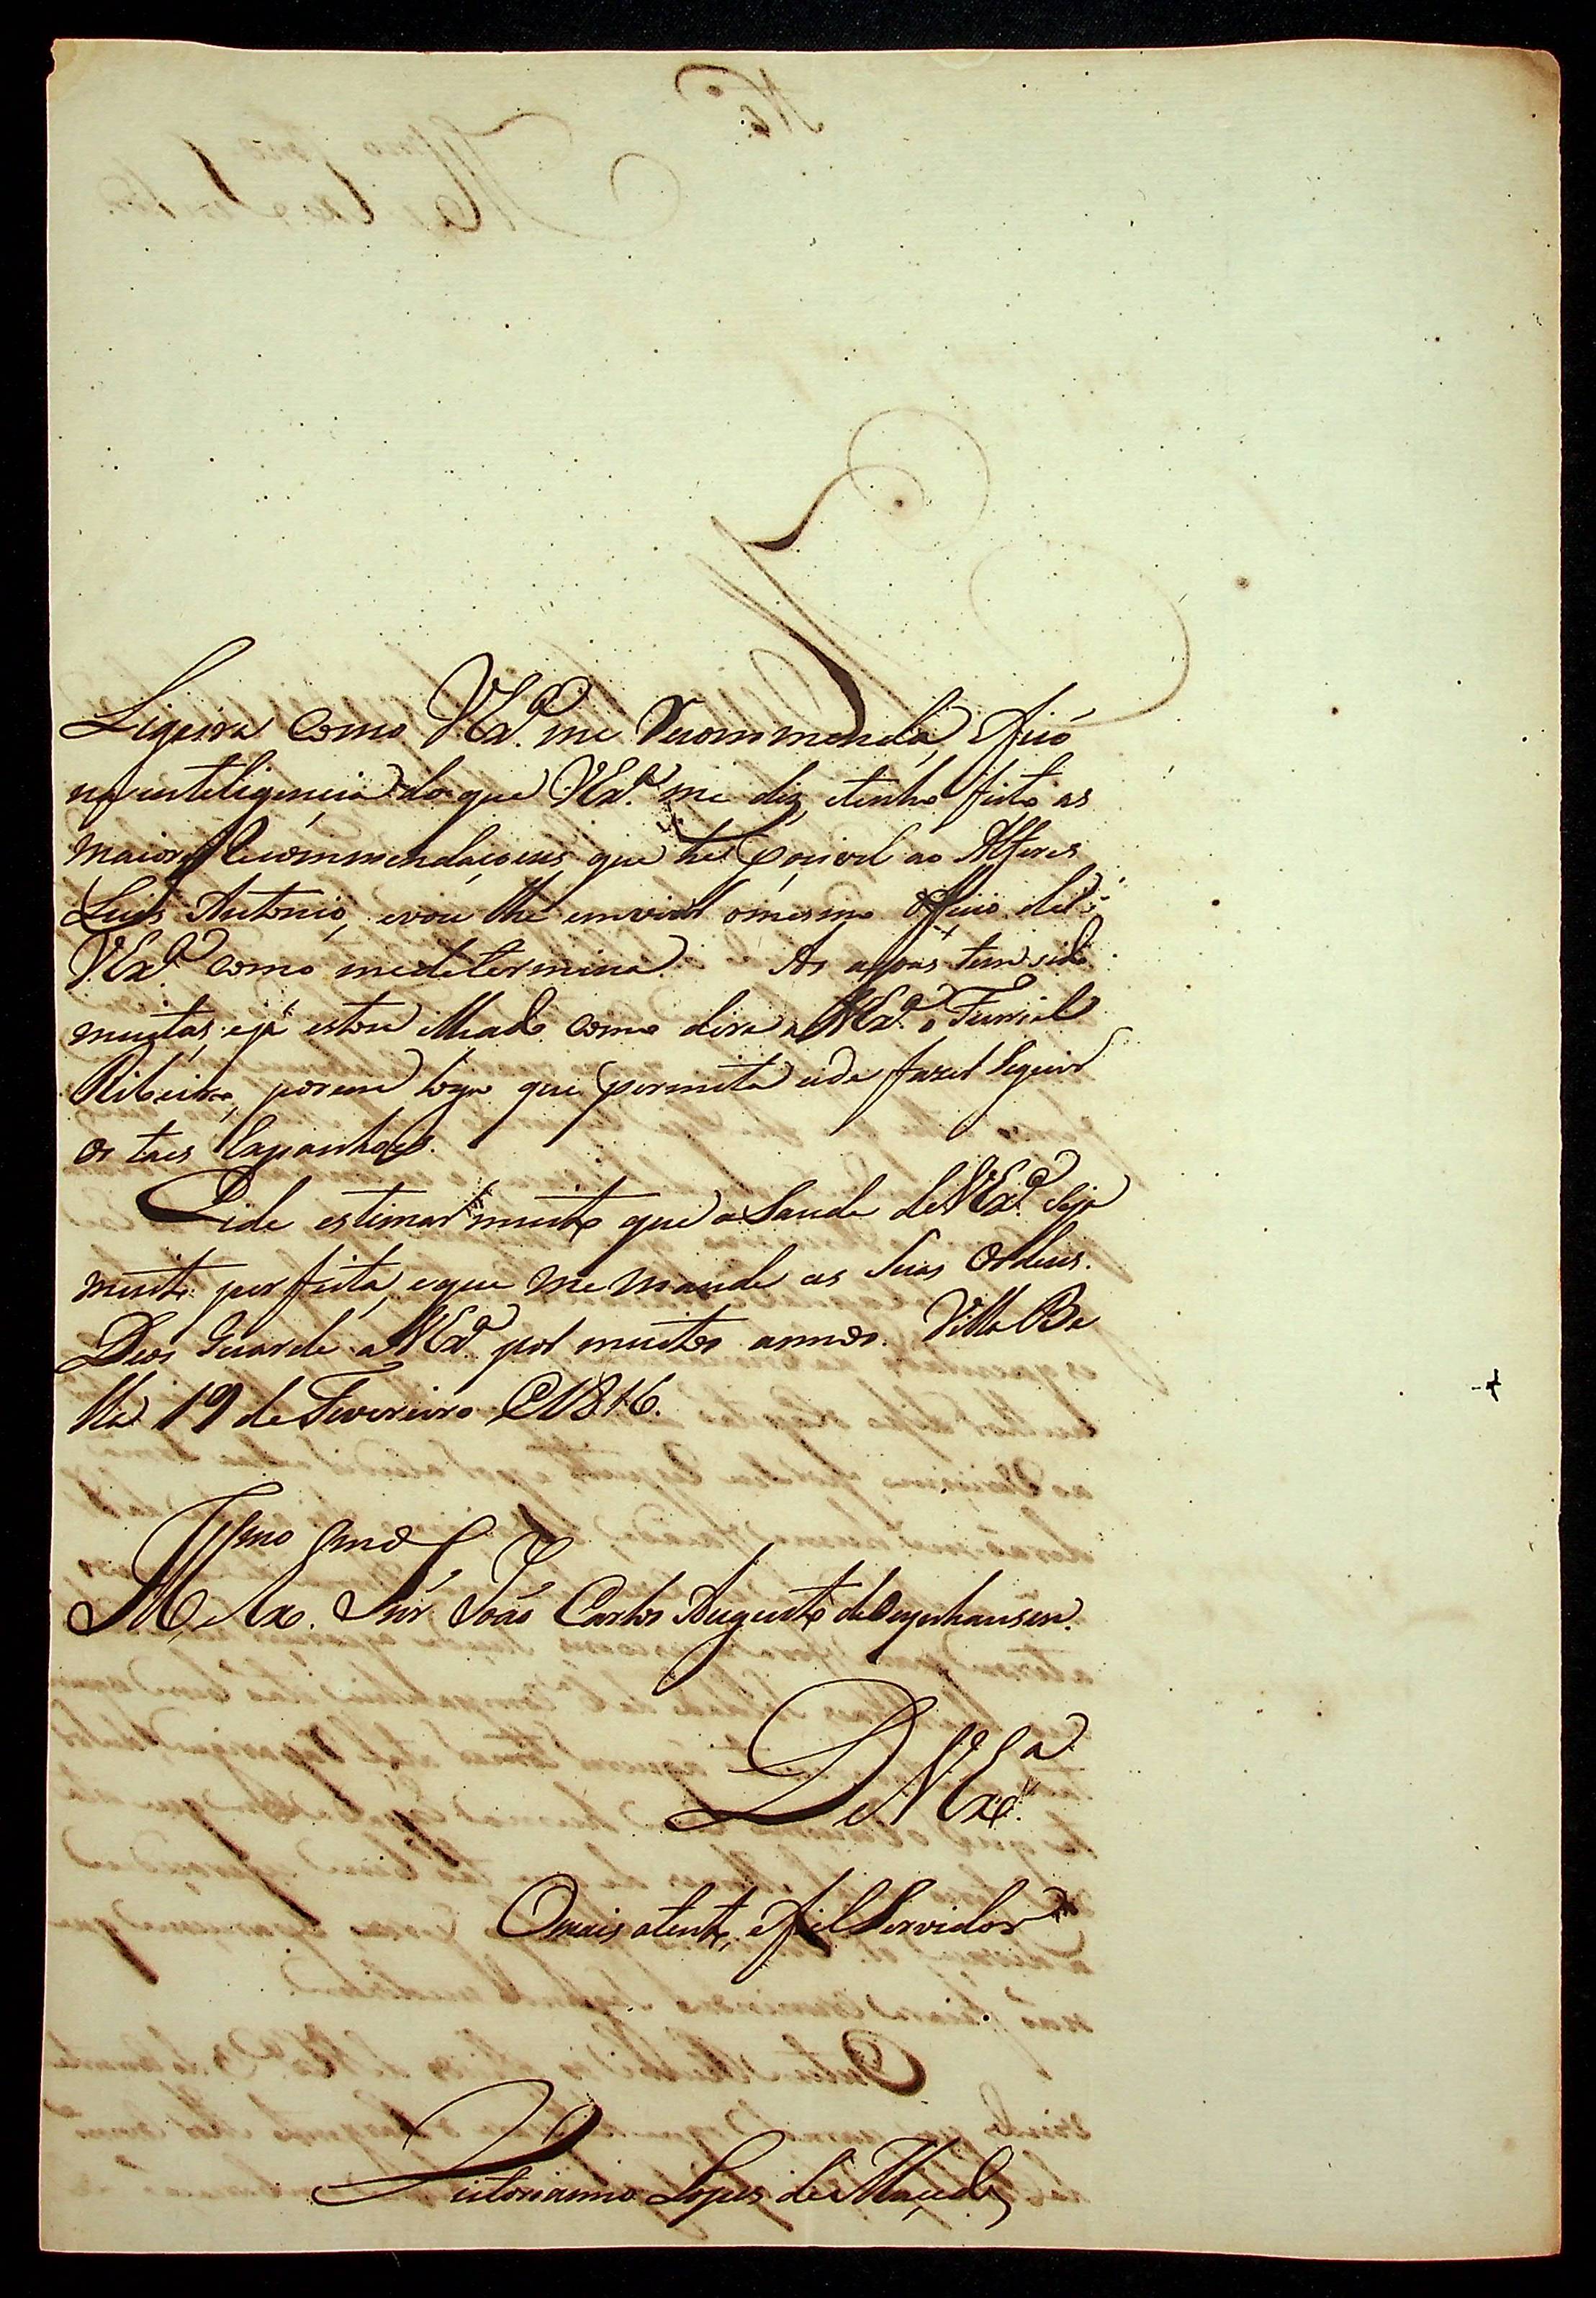 Ligeira como VEx.ª me recommenda, e fico
na inteligencia do que VEx.ª me diz, e tenho feito as
maiores Recommendaçoens que he pocivel ao Alferes
Luis Antonio, e vou lhe enviar o mesmo Officio de
VEx.ª como me determina. As agoas tem sido
muitas, e já estou ilhado como dirá a VEx.ª o Furriel
Ribeiro, porem logo que permita eide fazer Seguir
os taes Espanhoes.
Eide estimar muito que a Saude de VEx.ª Seja
muito perfeita, e que me mande as Suas Ordens.
Deos Guarde a VEx.ª por muitos annos. Villa Be
lla 19 de Fevereiro de 1816.
Illmo e Exmo Snr João Carlos Augusto de Oeynhausen.
De VEx.ª
O mais atento, e fiel Servidor
Victorianno Lopes de Macedo